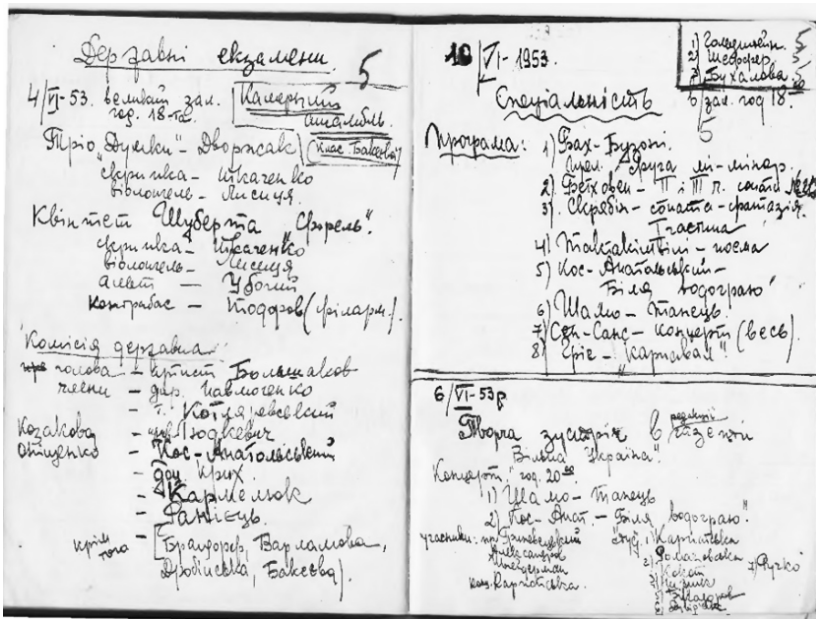 Державні екзамени.
5
4/VI-53. великий зал.
год. 18-та.
Камерный
ансамбль.
Тріо "Думки" - Дворжак
(клас Бакєєвой)
скрипка - Ткаченко
віолончель - Лисиця.
Квінтет Шуберта "Форель".
скрипка - Ткаченко
віолончель - Лисиця
альт - Убогий
контрабас - Тодоров (філарм.).
Комісія державна
голова - Большаков
члени - дир. Павлюченко
- т. Котляревський
Козакова - Людкевич
Онищенко - Кос-Анатольський
- доц. Крих.
- Кармелюк
-
крім того - [Брандорф, Варламова,
Бакєєва).
10/VI-1953.
1)
2)
3) Бухалова.
зал. год 18.
Спеціальність
5
Програма:
1) Бах-Бузоні.
мі-мінор.
2) Бетховен - II і III ч. соната
3) Скрябін - соната-фантазія.
I частина
4) Тактакішвілі - поема
5) Кос-Анатольський -
Біля водограю
6) Шамо - Танець.
7) Сен-Санс - концерт (весь).
8) Гріг - "Карнавал".
6/VI-53р
Творча зустріч в редакції газети
"Вільна Україна".
Концерт, год. 20⁰⁰
1) Шамо - Танець
2) Кос-Анат. - Біля водограю".
участники:
Александров
2) Романовська
7) Ручко